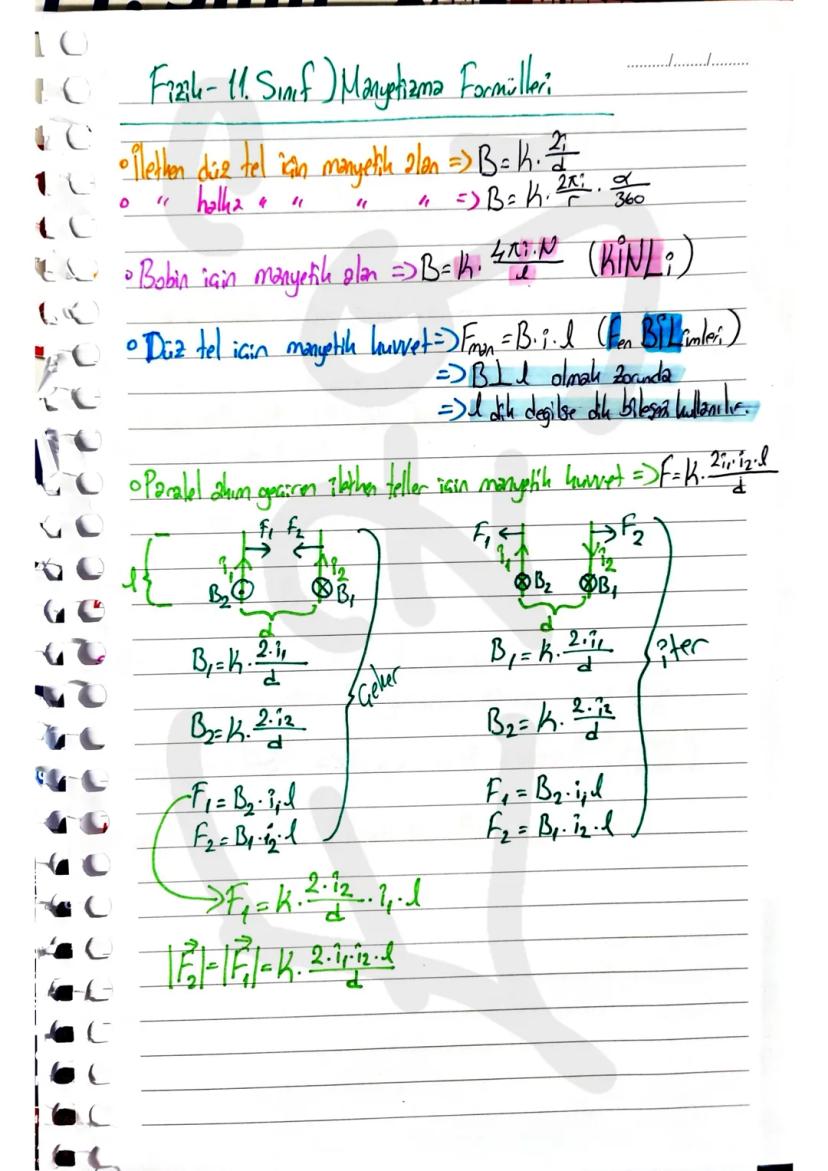 Fizik - 11. Sınıf ) Manyetizma Formülleri
........../......../.........
∘ İletken düz tel için manyetik alan => B = K · 2i/d
∘ " halka " " " " => B = K · 2πi/r · α/360
∘ Bobin için manyetik alan => B = K · 4πi·N/l (KİNLi)
∘ Düz tel için manyetik kuvvet => Fman = B·i·l (Fen BİLimleri)
=> B⊥l olmak zorunda
=> l dik değilse dik bileşeni kullanılır.
∘ Paralel akım geçiren iletken teller için manyetik kuvvet => F = K · 2i₁·i₂·l/d
F₁ F₂
l { i₁ i₂
B₂ ⊙ ⊗ B₁
d
B₁ = K · 2·i₁/d
B₂ = K · 2·i₂/d
F₁ = B₂·i₁l
F₂ = B₁·i₂·l
} Çeker
F₁ F₂
i₁ i₂
⊗ B₂ ⊗ B₁
d
B₁ = K · 2·i₁/d
B₂ = K · 2·i₂/d
F₁ = B₂·i₁l
F₂ = B₁·i₂·l
} iter
→ F₁ = K · 2·i₂/d · i₁·l
|F₂| = |F₁| = K · 2·i₁·i₂·l/d